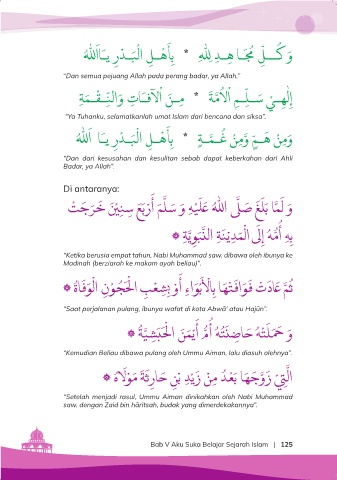 وَكُــــلِّ مُجَــاهِــدٍ لِلّٰهِ * بِأَهْــلِ الْبَــدْرِ يَــا اَللّٰهُ
“Dan semua pejuang Allah pada perang badar, ya Allah.”
إِلٰــهِــيْ سَــلِّــمِ الْأُمَّــةْ * مِــنَ الْآفَــاتِ وَالنِّــقْــمَةِ
“Ya Tuhanku, selamatkanlah umat Islam dari bencana dan siksa”.
وَمِنْ هَــمٍّ وَمِنْ غُــمَّــةْ * بِأَهْــلِ الْبَــدْرِ يَــا اَللّٰهُ
“Dan dari kesusahan dan kesulitan sebab dapat keberkahan dari Ahli
Badar, ya Allah”.
Di antaranya:
وَ لَمَّا بَلَغَ صَلَّى اللهُ عَلَيْهِ وَ سَلَّمَ أَرْبَعَ سِنِيْنَ خَرَجَتْ
بِهِ أُمُّهُ إِلَى الْمَدِيْنَةِ النَّبَوِيَّةِ
“Ketika berusia empat tahun, Nabi Muhammad saw. dibawa oleh ibunya ke
Madinah (berziarah ke makam ayah beliau)”.
ثُمَّ عَادَتْ فَوَافَتْهَا بِالْأَبْوَاءِ أَوْ بِشِعْبِ الْحَجُوْنِ الْوَفَاةُ
“Saat perjalanan pulang, ibunya wafat di kota Abwā’ atau Hajūn”.
وَ حَمَلَتْهُ حَاضِنَتُهُ أُمُّ أَيْمَنَ الْحَبَشِيَّةُ
“Kemudian Beliau dibawa pulang oleh Ummu Aiman, lalu diasuh olehnya”.
الَّتِيْ زَوَّجَهَا بَعْدُ مِنْ زَيْدِ بْنِ حَارِثَةَ مَوْلَاهُ
“Setelah menjadi rasul, Ummu Aiman dinikahkan oleh Nabi Muhammad
saw. dengan Zaid bin hāritsah, budak yang dimerdekakannya”.
Bab V Aku Suka Belajar Sejarah Islam | 125